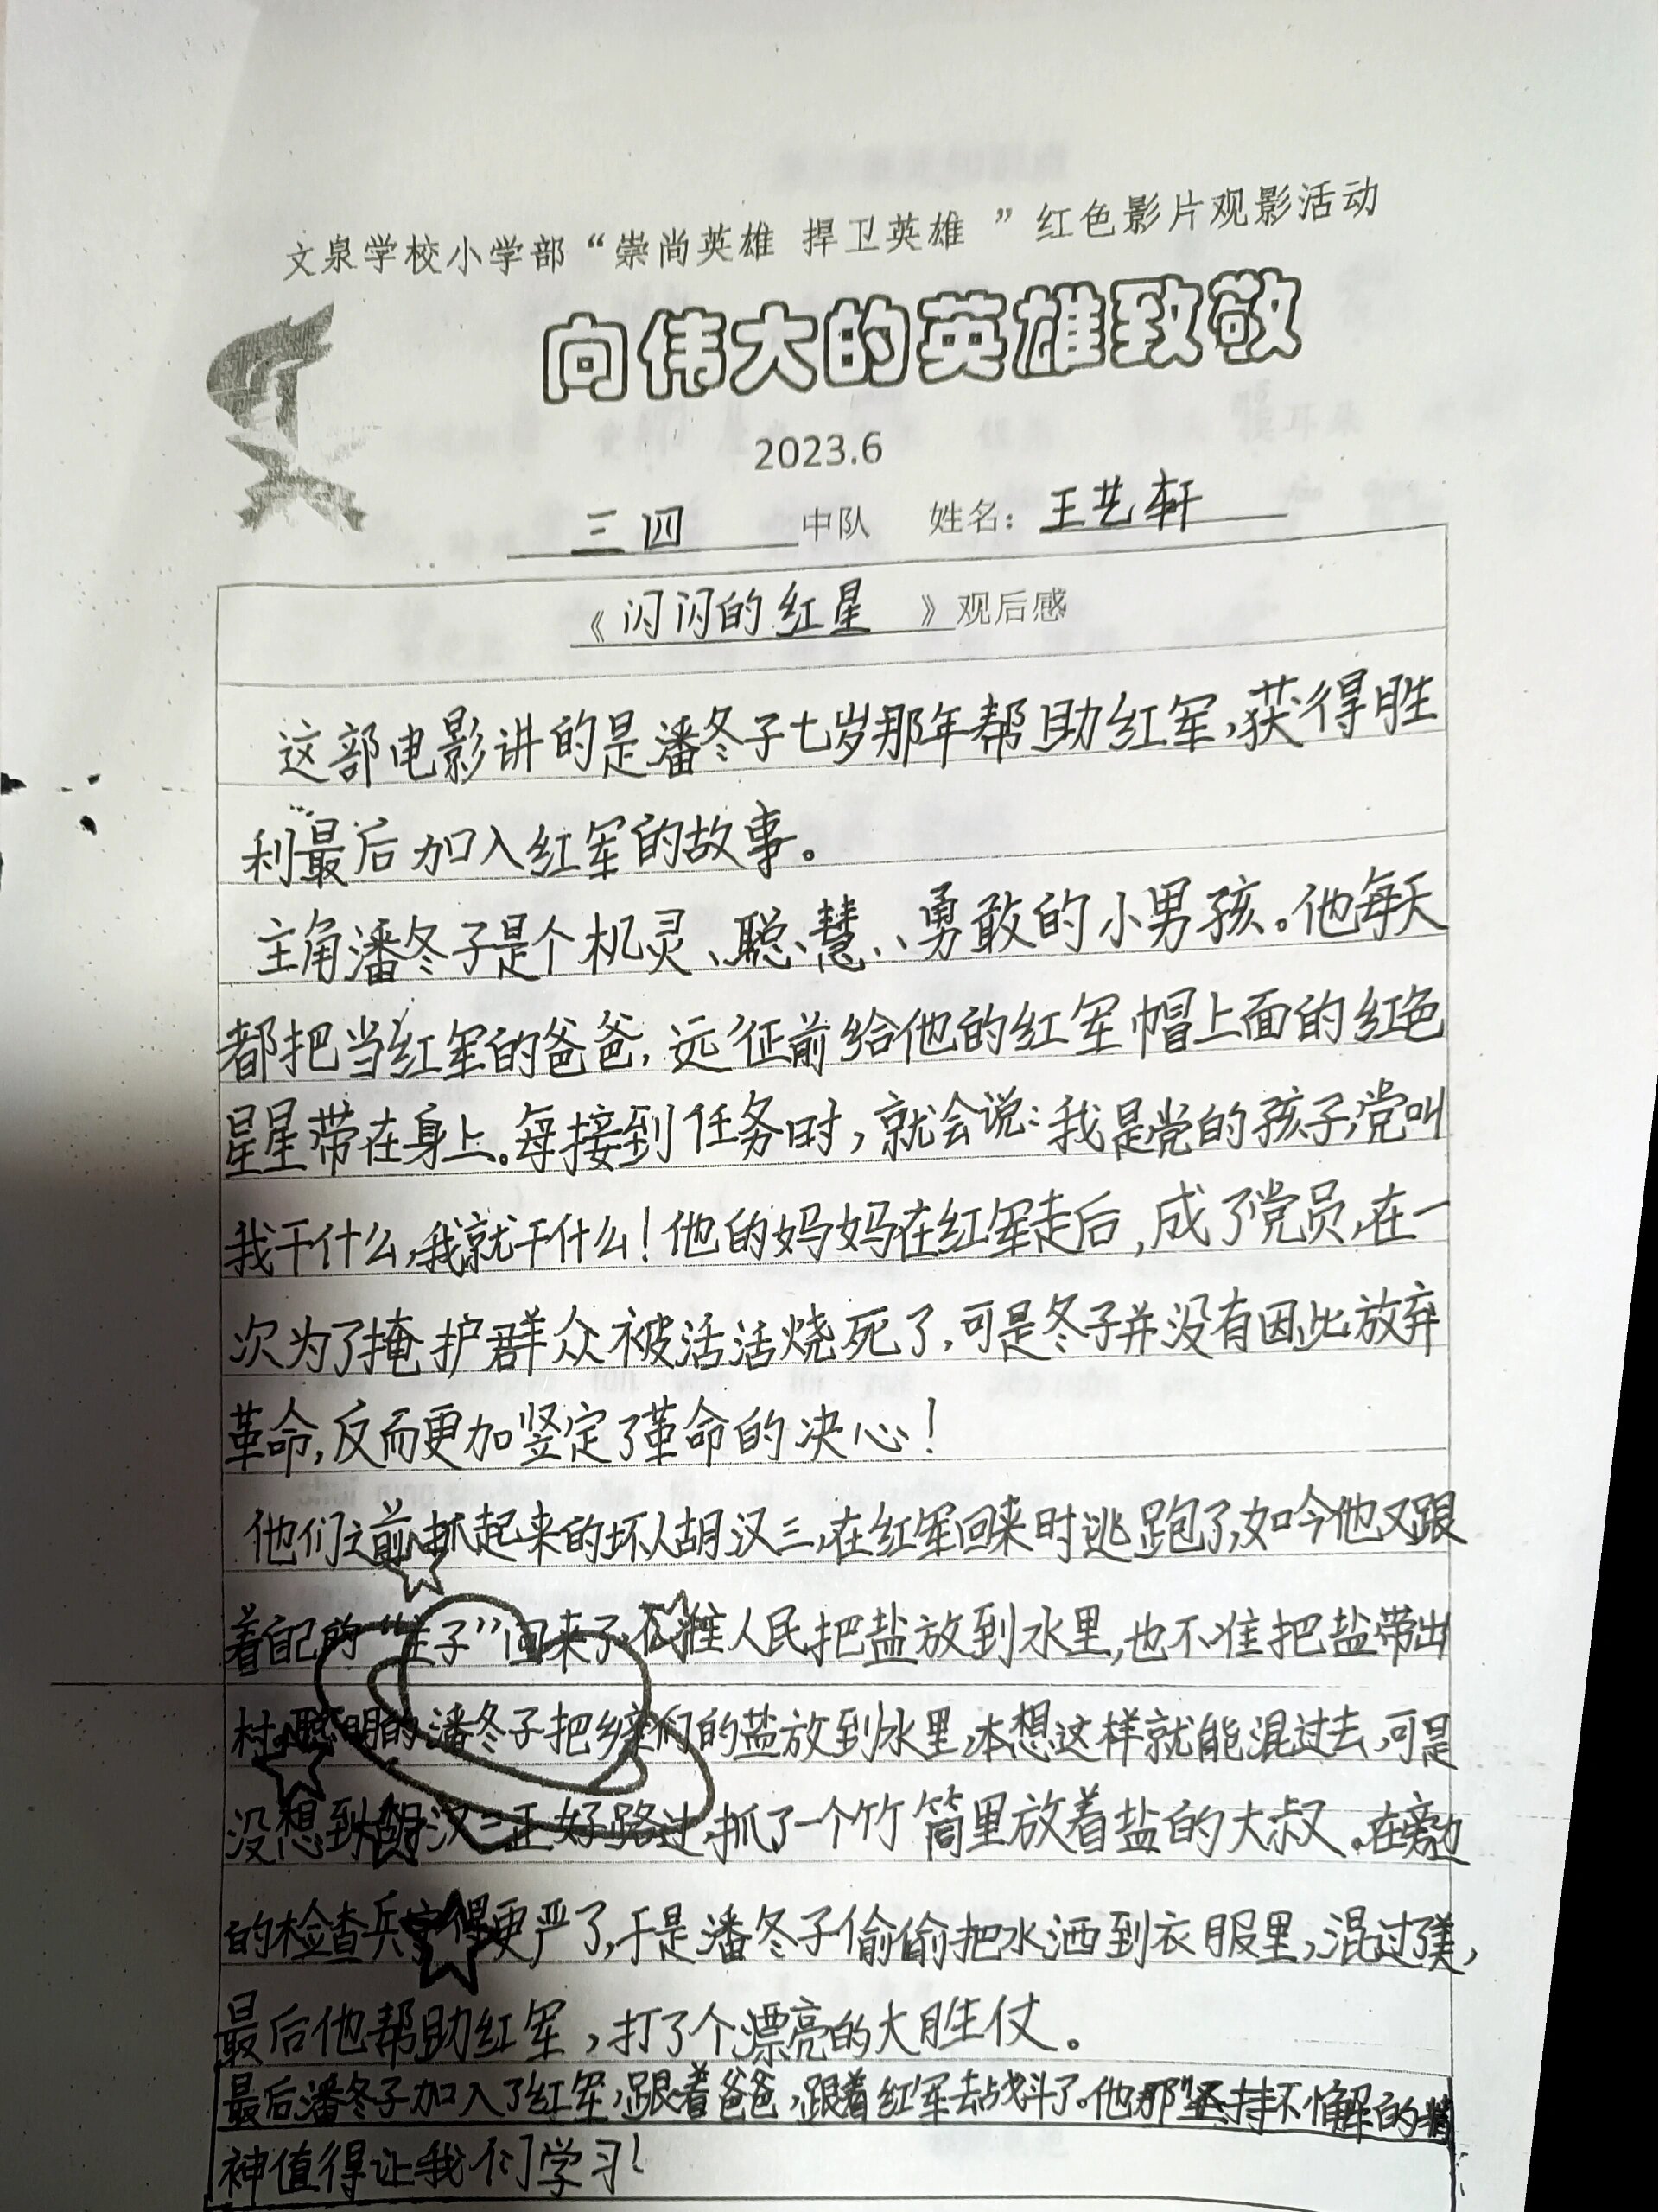 文泉学校小学部“崇尚英雄 捍卫英雄 ”红色影片观影活动
向伟大的英雄致敬
2023.6
三四 中队 姓名：王艺轩
《闪闪的红星 》观后感
这部电影讲的是潘冬子七岁那年帮助红军，获得胜
利最后加入红军的故事。
主角潘冬子是个机灵、聪慧、勇敢的小男孩。他每天
都把当红军的爸爸，远征前给他的红军帽上面的红色
星星带在身上。每接到任务时，就会说：我是党的孩子，党叫
我干什么，我就干什么！他的妈妈在红军走后，成了党员，在一
次为了掩护群众被活活烧死了，可是冬子并没有因此放弃
革命，反而更加坚定了革命的决心！
他们之前抓起来的坏人胡汉三，在红军回来时逃跑了，如今他又跟
着自己的“主子”回来了，不准人民把盐放到水里，也不准把盐带出
村。聪明的潘冬子把乡亲们的盐放到水里，本想这样就能混过去，可是
没想到胡汉三正好路过，抓了一个竹筒里放着盐的大叔。在旁边
的检查兵 得更严了，于是潘冬子偷偷把水洒到衣服里，混过了
最后他帮助红军，打了个漂亮的大胜仗。
最后潘冬子加入了红军，跟着爸爸，跟着红军去战斗了。他那坚持不懈的精
神值得让我们学习！